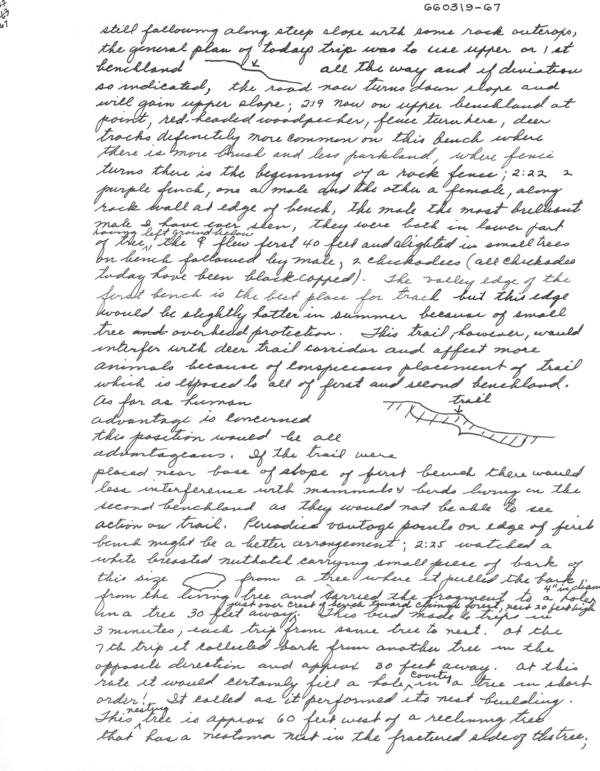 660319-67
still following along steep slope with some rock outcrops,
the general plan of todays trip was to use upper or 1 st
benchland all the way and if deviation
so indicated, the road now turns down slope and
will gain upper slope; 2:19 now on upper benchland at
point, red-headed woodpecker, fence turn here, deer
tracks definitely more common on this bench where
there is more brush and less parkland, where fence
turns there is the beginning of a rock fence; 2:22 2
purple finch, one a male and the other a female, along
rock wall at edge of bench, the male the most brilliant
male I have ever seen, they were both in lower part
having left ground below
of tree, the ♀ flew first 40 feet and alighted in small trees
on bench followed by male, 2 chickadees (all chickadee
today have been black-capped). The valley edge of the
first bench is the best place for trail but this edge
would be slightly hotter in summer because of small
tree and overhead protection. This trail however, would
interfer with deer trail corridor and affect more
animals because of conspicious placement of trail
which is exposed to all of first and second benchland.
As far as human
trail
advantage is concerned
this position would be all
advantageous. If the trail were
placed near base of slope of first bench there would
less interference with mammals & birds living on the
second benchland as they would not be able to see
action on trail. Periodics vantage points on edge of first
bench might be a better arrangement; 2:25 watched a
white breasted nuthatch carrying small piece of bark of
this size from a tree where it pulled the bark
4" in diam
from the living tree and carried the fragment to a hole
just over crest of bench toward climax forest, nest 20 feet high
in a tree 30 feet away. This bird made 6 trips in
3 minutes, each trip from same tree to nest. At the
7th trip it collected bark from another tree in the
opposite direction and approx 30 feet away. At this
rate it would certainly fill a hole in a tree in short
cavity
order! It called as it performed its nest building.
nesting
This tree is approx 60 feet west of a reclining tree
that has a neotoma nest in the fractured side of the tree;